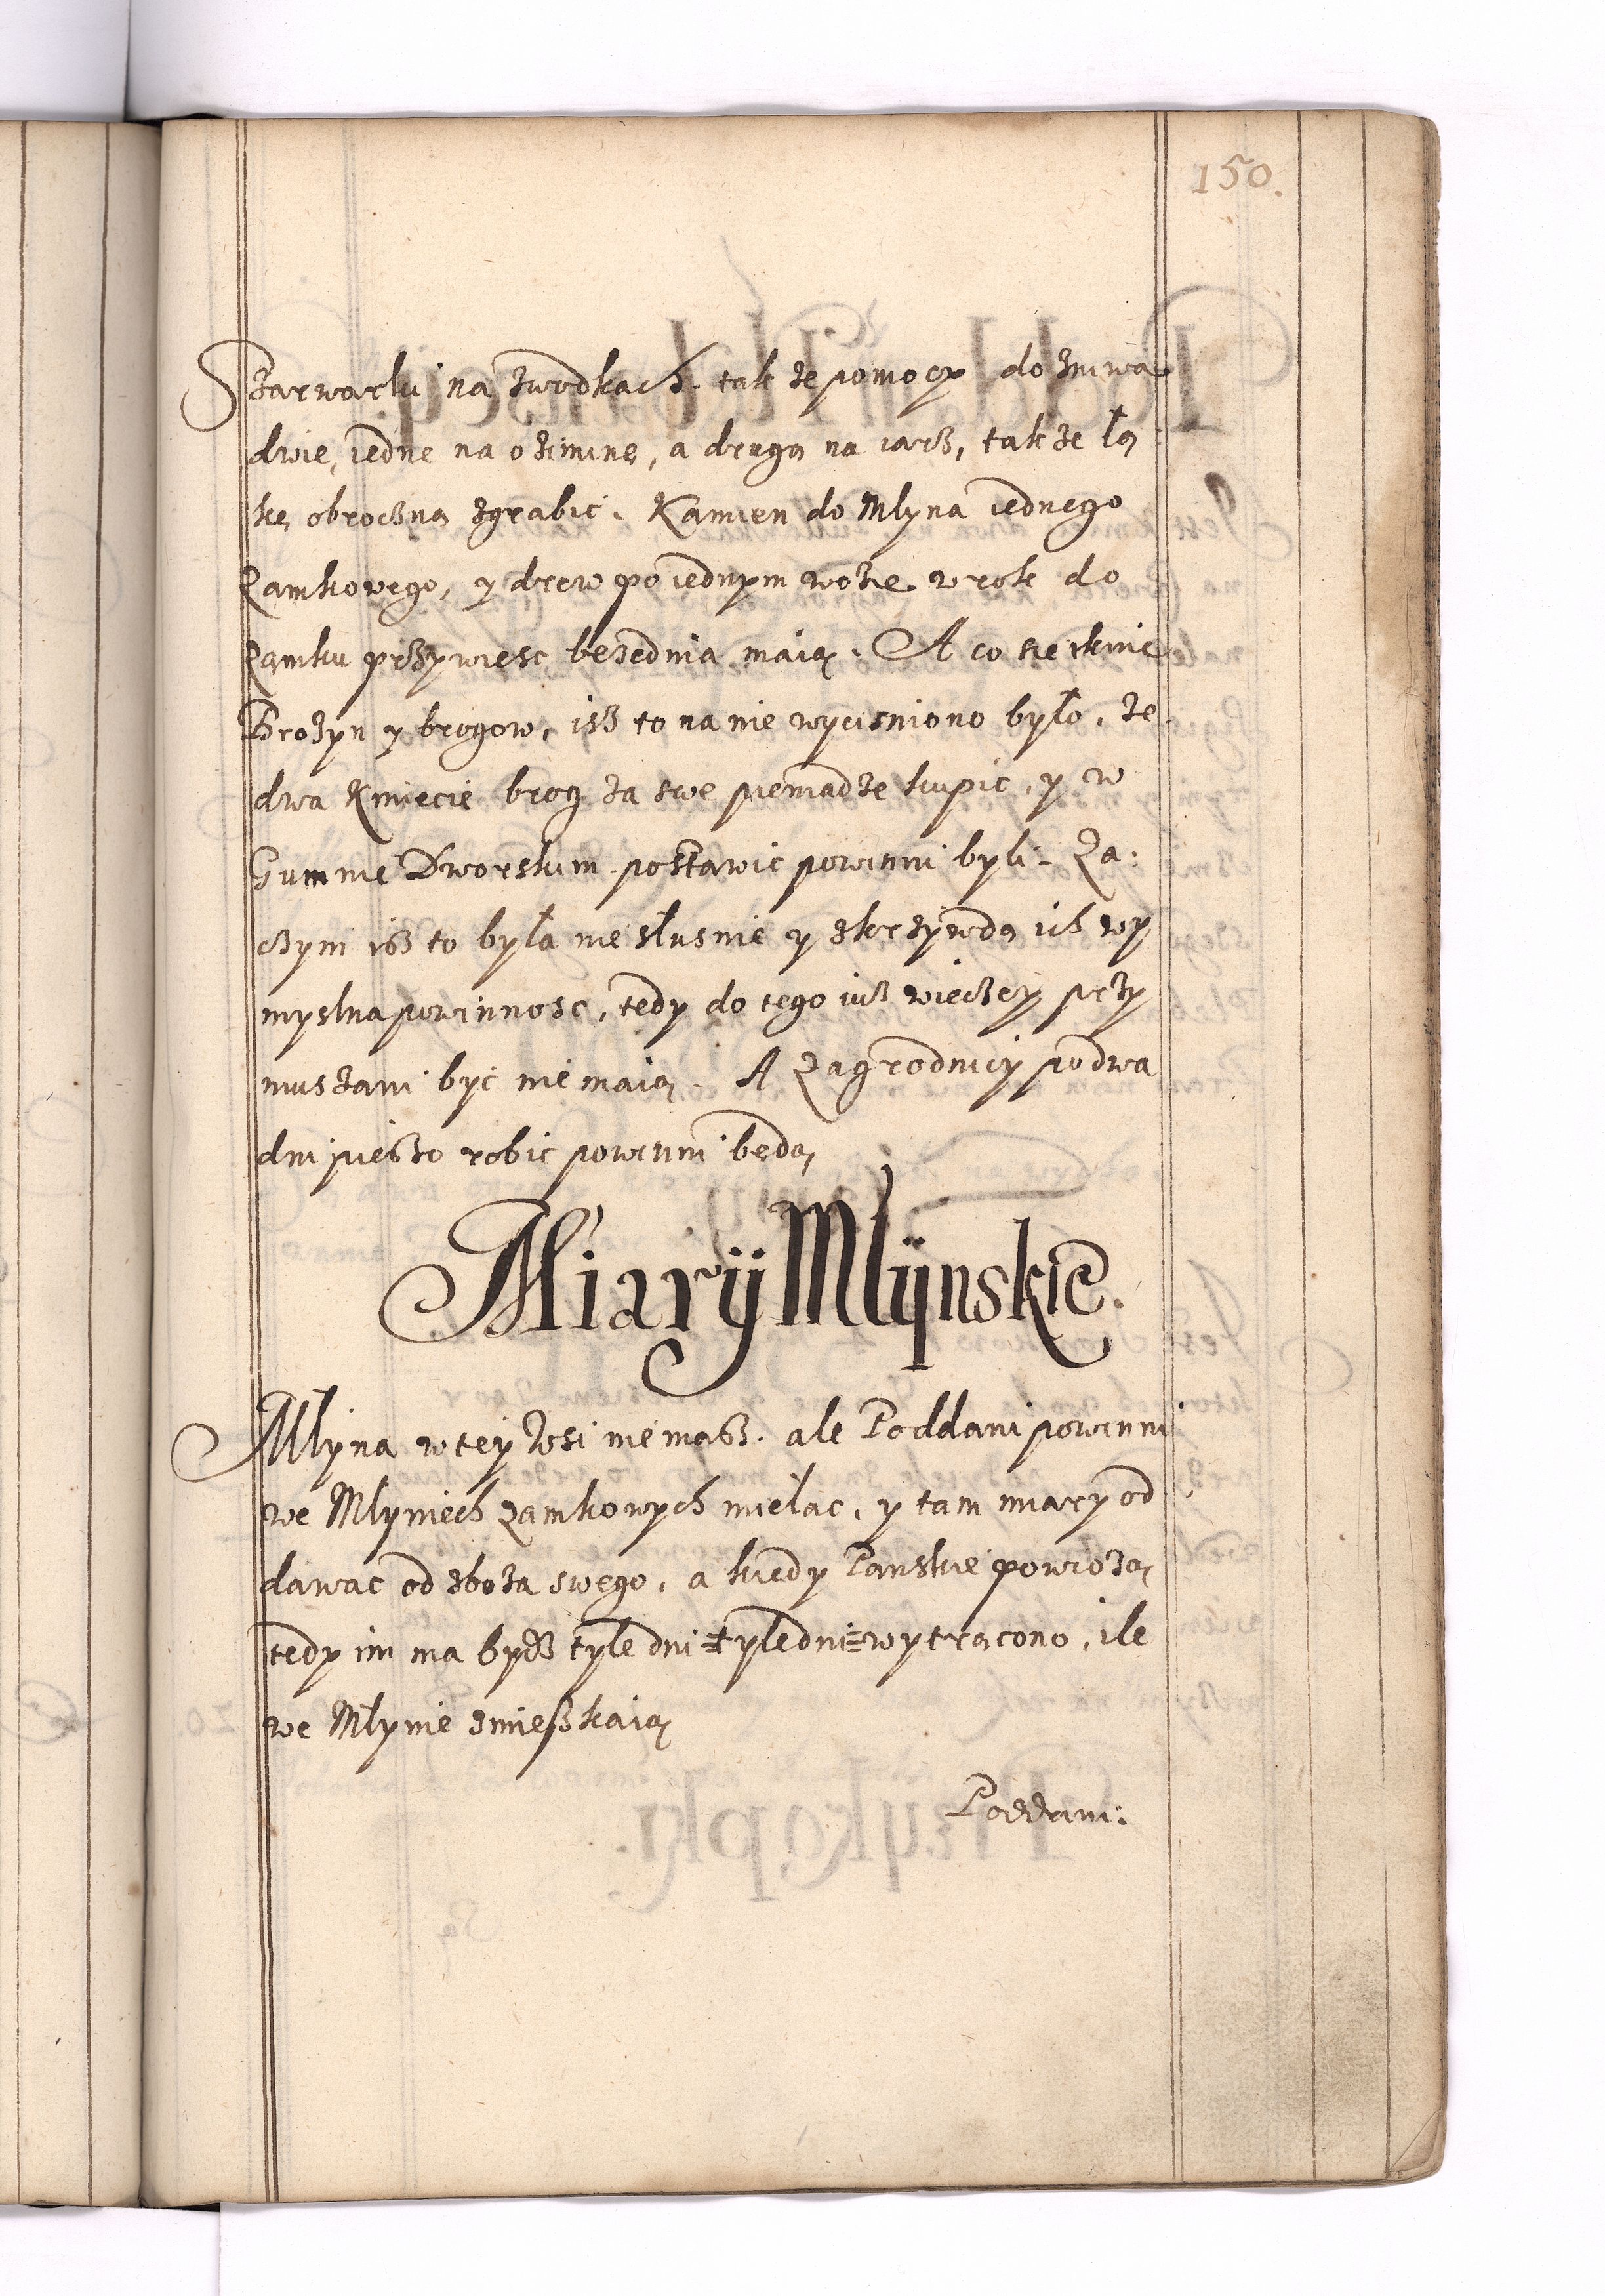 150.
Szarwarki na zwodkach. tak ze pomocy do zniwa
dwie, iedne na ozimine, a drugą na iarz, tak ze łą
kę obroczną zgrabić. Kamien do Mlyna iednego
Zamkowego, y drew po iednym wozie w rok do
Zamku przywiesc bezednia maią. A co sie tknie
Brozyn y brogow, isz to na nie wycisniono było, ze
dwa Kmiecie brog za swe pieniadze kupić, y w
Gumnie Dworskim postawić powinni byli. Za:
czym isz to była niesłusnie y zkrziwdą ich wy
myslna powinnosc, tedy do tego iusz wieczey przy
muszani być nie maią. A Zagrodnicy po dwa
dni pieszo robić powinni bedą,
Miary Mlynskie.
Mlyna w tey Wsi nie masz. ale Poddani powinni
we Mlyniech Zamkowych mielac, y tam miary od
dawac od zboza swego, a kiedy Panskie powiozą
tedy im ma bydz tyle dni tyle dni wytrącono, ile
we Mlynie zmieszkaią
Poddani: